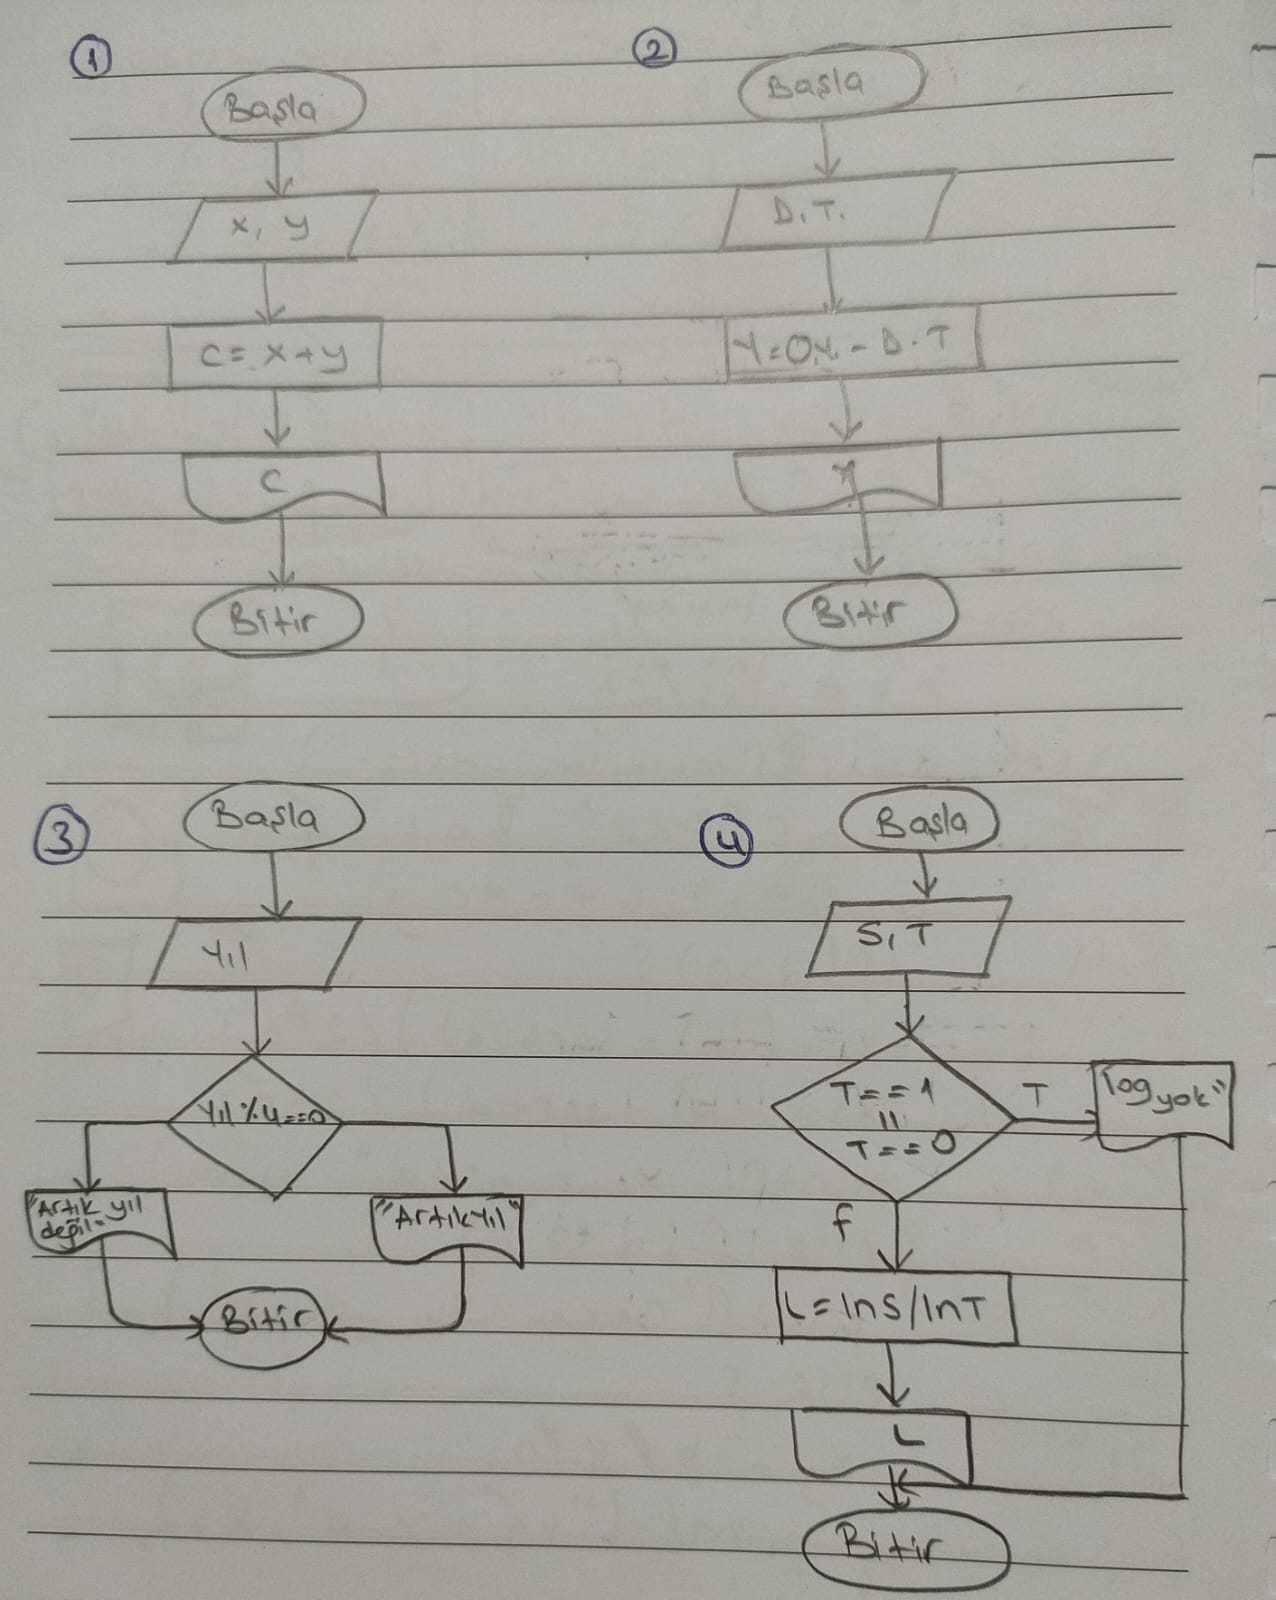 1
Başla
x, y
C = x + y
C
Bitir
2
Başla
D.T.
Y = O.Y. - D.T
Y
Bitir
3
Başla
Yıl
Yıl % 4 == 0
"Artık yıl
değil"
"Artık Yıl"
Bitir
4
Başla
S, T
T == 1
||
T == 0
T
"log yok"
f
L = lnS/lnT
L
Bitir